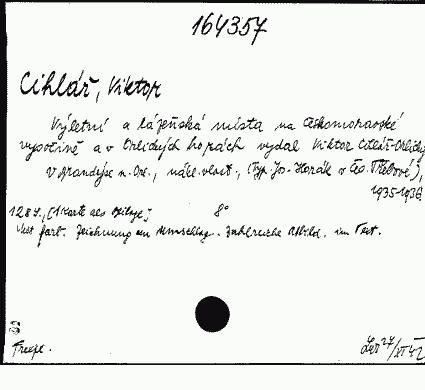 164357
Cihlář, Viktor
Výletní a lázeňská místa na Českomoravské
vysočině a v Orlických horách vydal Viktor Cihlář-Orlický
v Brandýse n. Orl., nákl. vlast., (Typ. Jos. Horák v Čes. Třebové),
1935-1936
128 S., [1 Karte als Beilage] 8°
Mit farb. Zeichnung am Umschlag. Zahlreiche Abbild. im Text.
Freiexpl.
27/XI 42